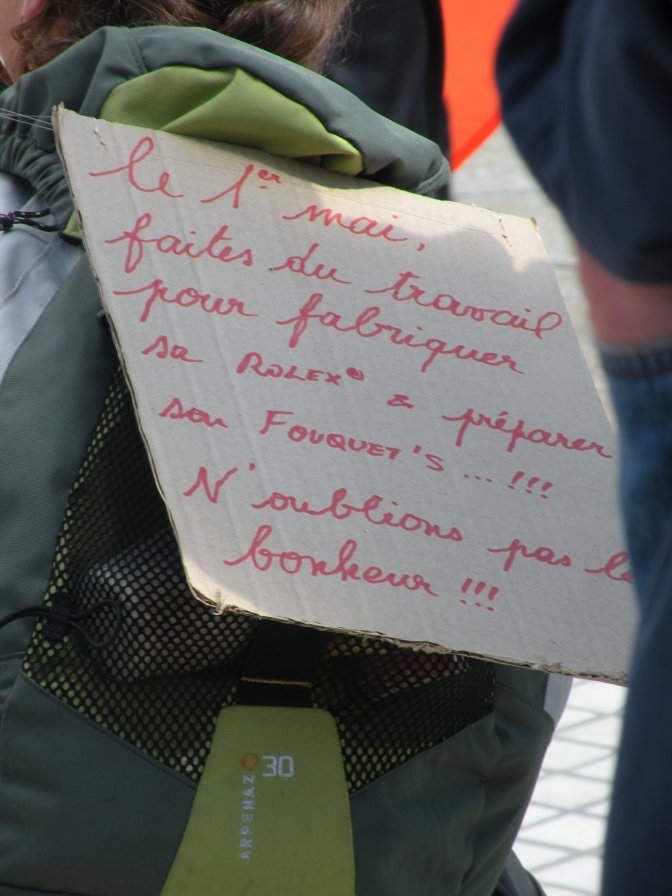 le 1er mai,
faites du travail
pour fabriquer
sa ROLEX® & préparer
son FOUQUET'S ... !!!
N'oublions pas le
bonheur !!!
30
ARPENAZ